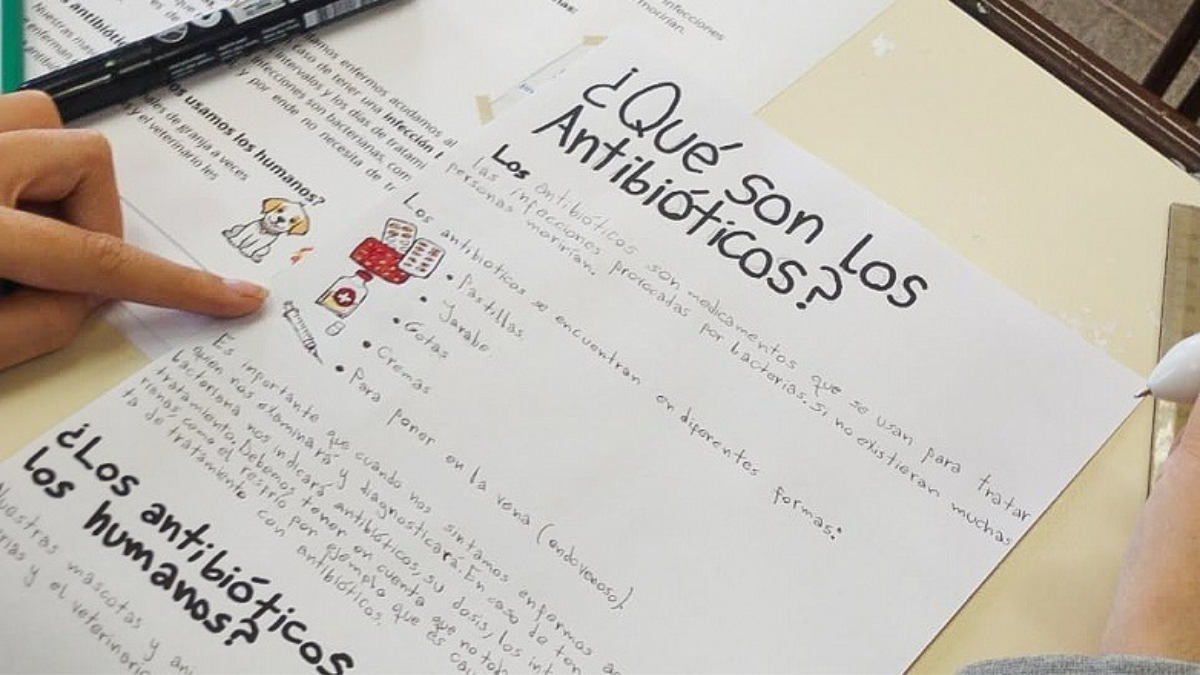 ¿Qué son los
Antibióticos?
Los antibióticos son medicamentos que se usan para tratar
las infecciones provocadas por bacterias. Si no existieran muchas
personas morirían.
Los antibioticos se encuentran en diferentes formas:
• Pastillas.
• Jarabe
• Gotas
• Cremas
• Para poner en la vena (endovenoso)
Es importante que cuando nos sintamos enfermos ac
quien nos examinará y diagnosticará. En caso de ten
bacteriana nos indicará antibióticos, su dosis, los int
tratamiento. Debemos tener en cuenta que no tod
rianas, como el resfrío por ejemplo que es cau
ta de tratamiento con antibióticos.
¿Los antibióticos
los humanos?
Nuestras mascotas y ani
rias y el veterinario
infecciones
morirán.
antibióti
Nuestras mas
enferman
amos enfermos acudamos al
caso de tener una infección
intervalos y los días de tratami
infecciones son bacterianas, com
y por ende no necesita de tr
os usamos los humanos?
ales de granja a veces
s y el veterinario les